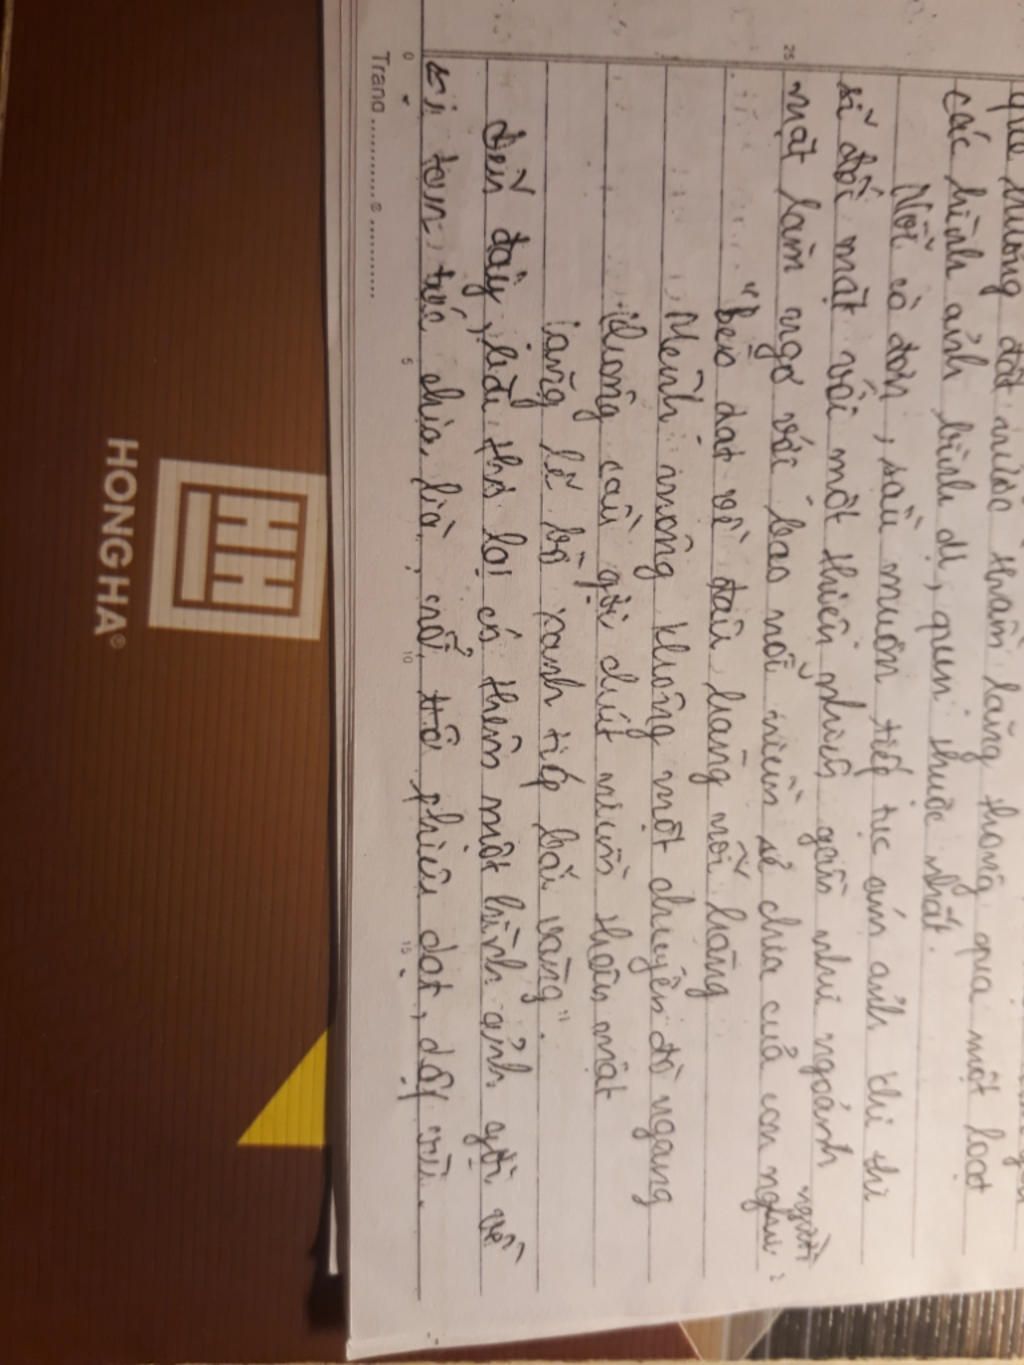 quê hương đất nước thầm lặng thông qua một loạt
các hình ảnh bình dị, quen thuộc nhất.
Nỗi cô đơn, sầu muộn tiếp tục ám ảnh khi thi
sĩ đối mặt với một thiên nhiên gần như ngoảnh
mặt làm ngơ với bao nỗi niềm sẻ chia của con người :
người
"Bèo dạt về đâu hàng nối hàng
Mênh mông không một chuyến đò ngang
Không cầu gợi chút niềm thân mật
Lặng lẽ bờ xanh tiếp bãi vàng".
Đến đây, lời thơ lại có thêm một hình ảnh gợi về
sự tan tác chia lìa, nổi trôi phiêu dạt, đầy rủi.
Trang
25
0
5
10
15
HH
HONGHA®